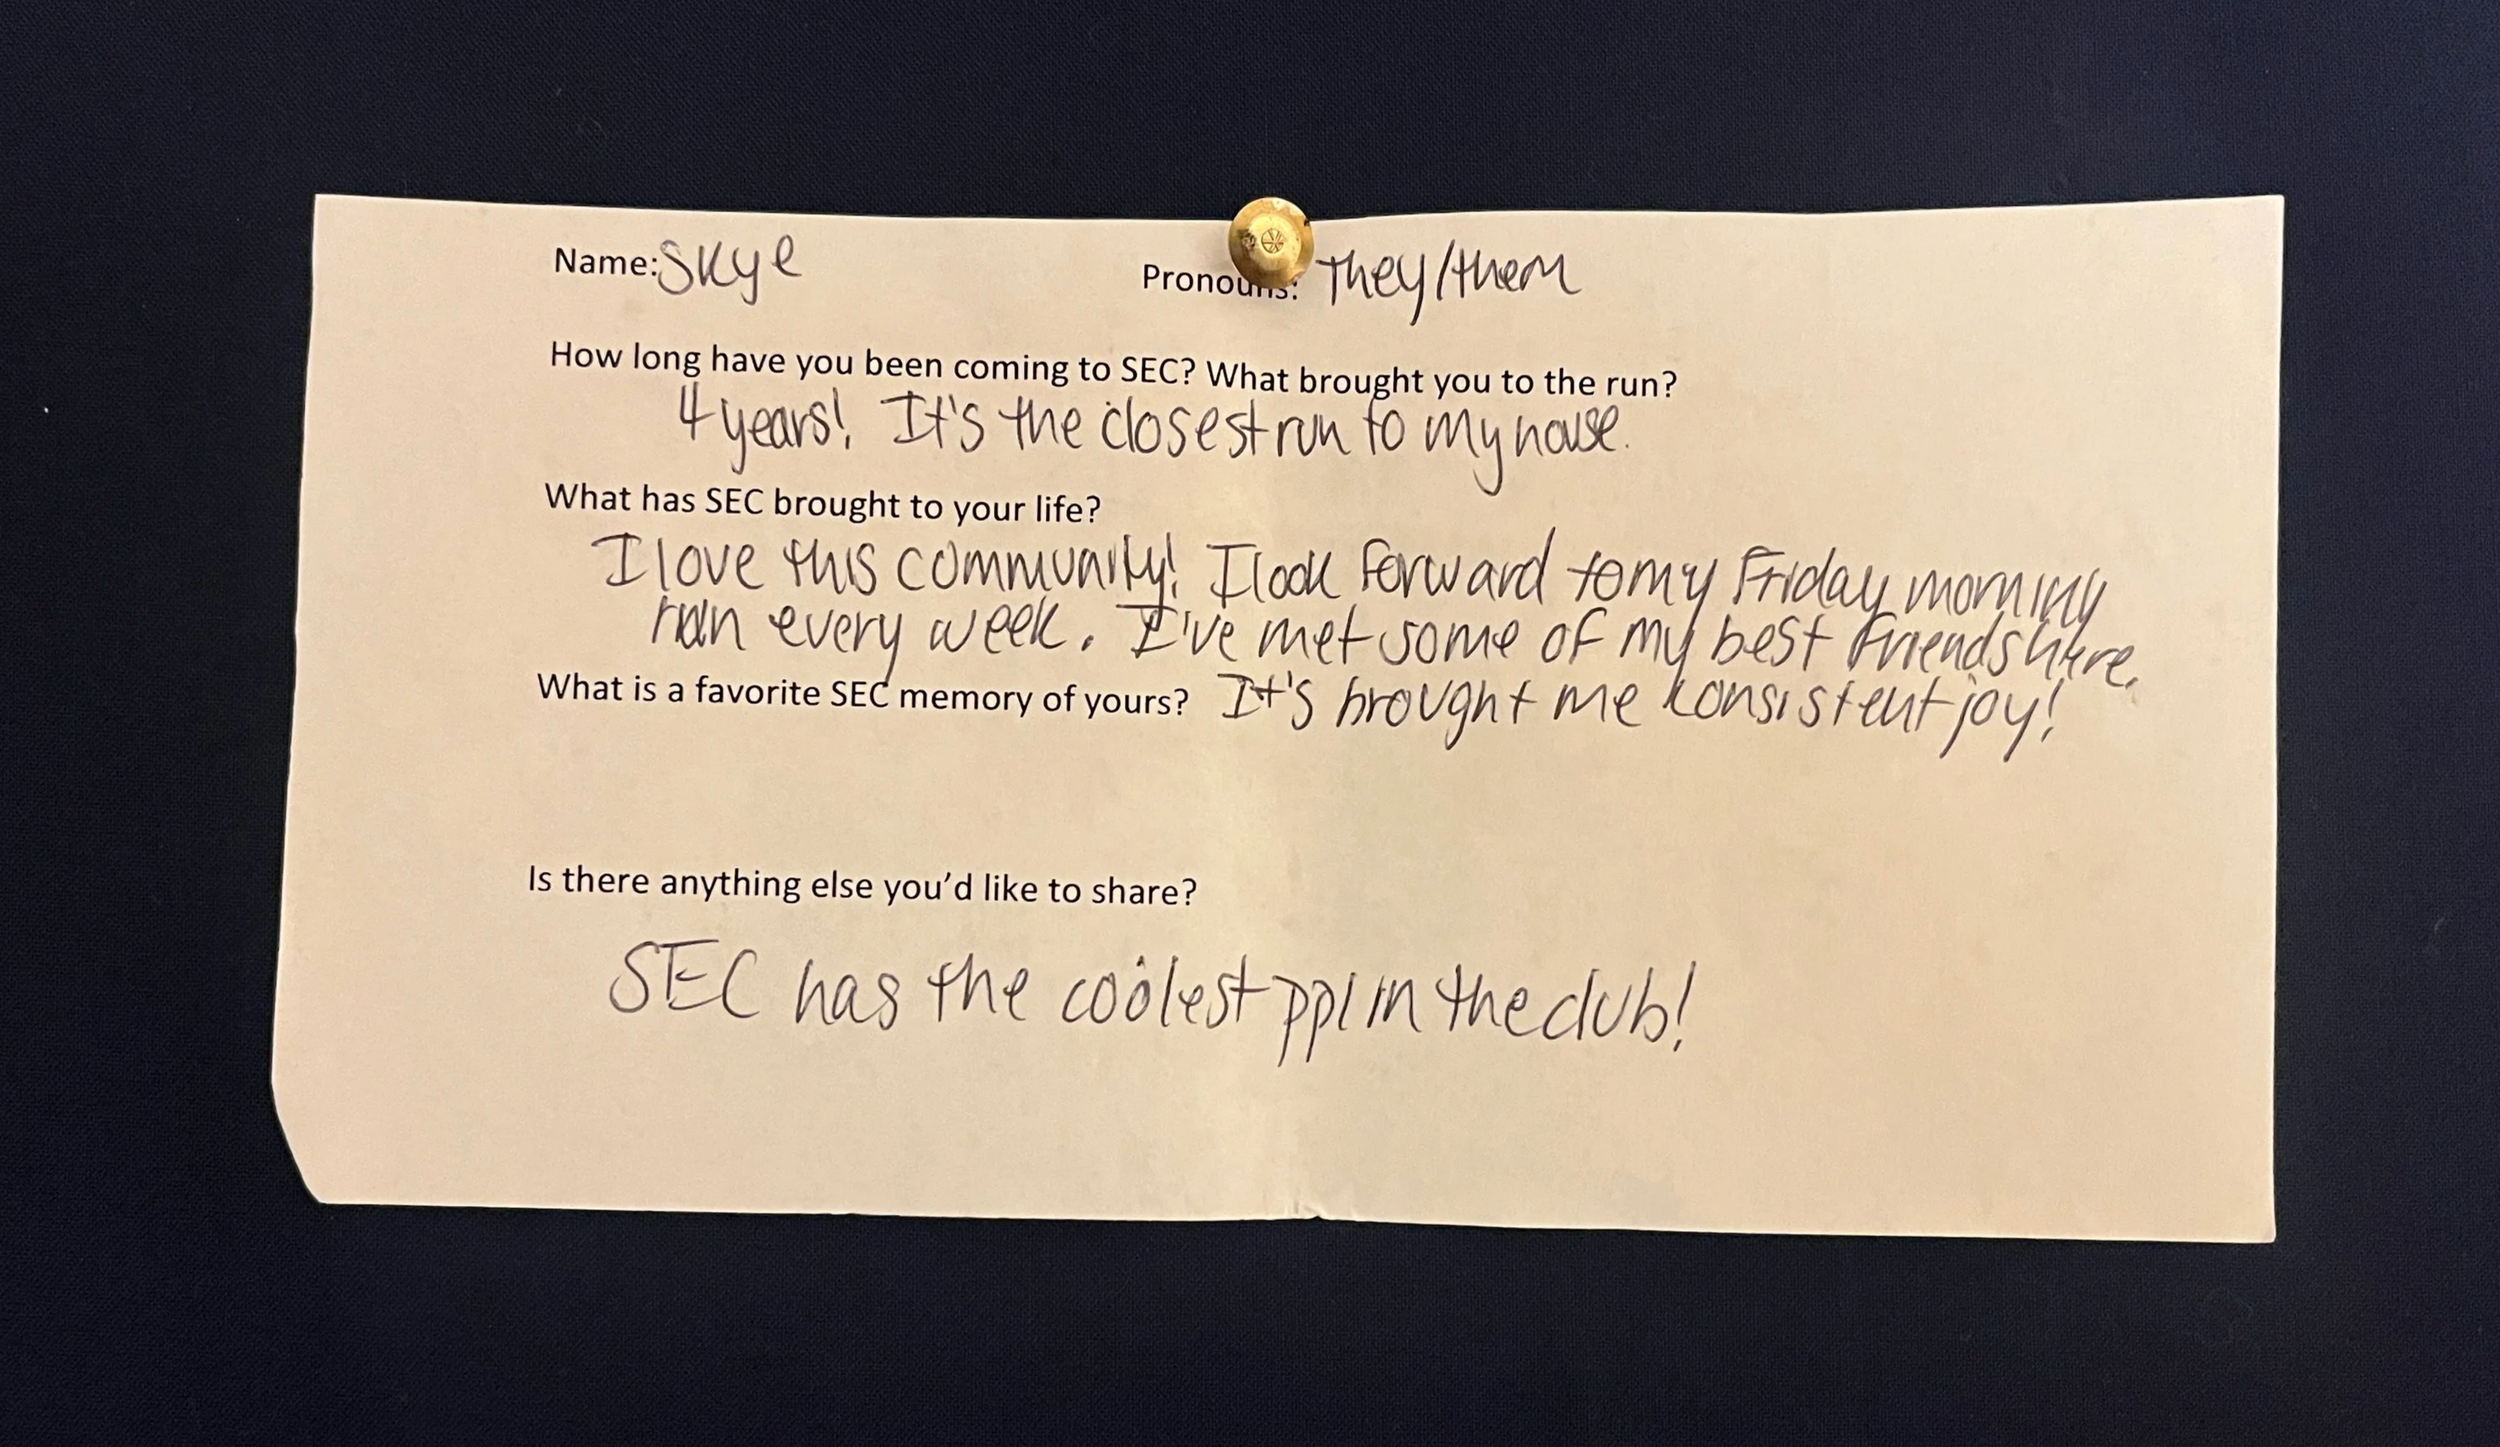 Name: Skye Pronouns: They/them
How long have you been coming to SEC? What brought you to the run?
4 years! It's the closest run to my house.
What has SEC brought to your life?
I love this community! I look forward to my Friday morning
run every week. I've met some of my best friends here.
What is a favorite SEC memory of yours? It's brought me consistent joy!
Is there anything else you'd like to share?
SEC has the coolest ppl in the club!